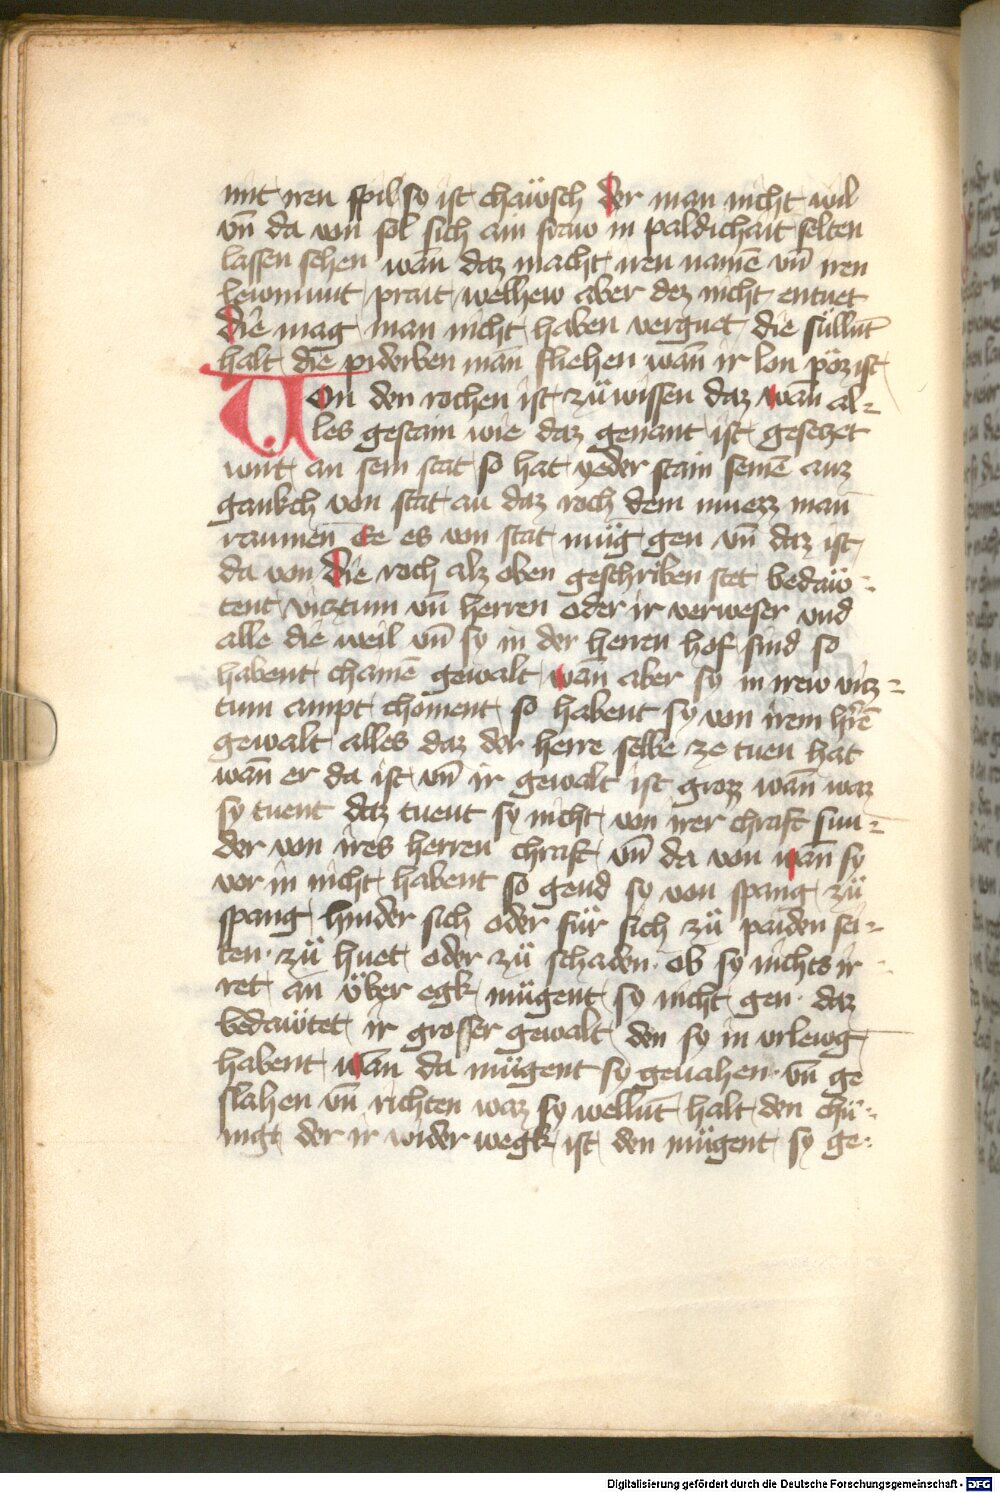 mit iren spil so ist chäwsch der man nicht wil
vn̄ da von sol sich ain fraw in paldichait selten
lassen sehen wan̄ daz macht iren namē vn̄ iren
lewmunt prait welhew aber dez nicht entuet
die mag man nicht haben verguet die süllnt
halt die piderben man fliehen wan̄ ir lon pöz ist
Von den rochen ist zü wissen daz wan̄ al-
les gestain wie daz genant ist geseczet
wirt an sein stat so hat yeder stain seinē auz
gankch von stat an daz roch dem muezz man
raumen ee es von stat müg gen vn̄ daz ist
da von die roch alz oben geschriben stet bedäw-
tent viztum vn̄ herren oder ir verweser vnd
alle die weil vn̄ sy in der herren hof sind so
habent chainē gewalt wan̄ aber sy in irew vicz-
tum ampt choment so habent sy von irem hr̄ē
gewalt alles daz der herre selbe ze tuen hat
wan̄ er da ist vn̄ ir gewalt ist grozz wan̄ waz
sy tuent daz tuent sy nicht von irer chraft sun-
der von ires herren chraft vn̄ da von wan̄ sy
vor in nicht habent so gend sy von spang zü
spang hinder sich oder für sich zü paiden sei-
ten zü huet oder zü schaden ob sy nichts ir-
ret an über egk mügent sy nicht gen daz
bedäwtet ir grosser gewalt den sy in vrlewg
habent wan̄ da mügent sy geuahen vn̄ ge
slahen vn̄ richten waz sy wellnt halt den chü-
nigt der ir wider wegk ist den mügent sy ge-
Digitalisierung gefördert durch die Deutsche Forschungsgemeinschaft - DFG